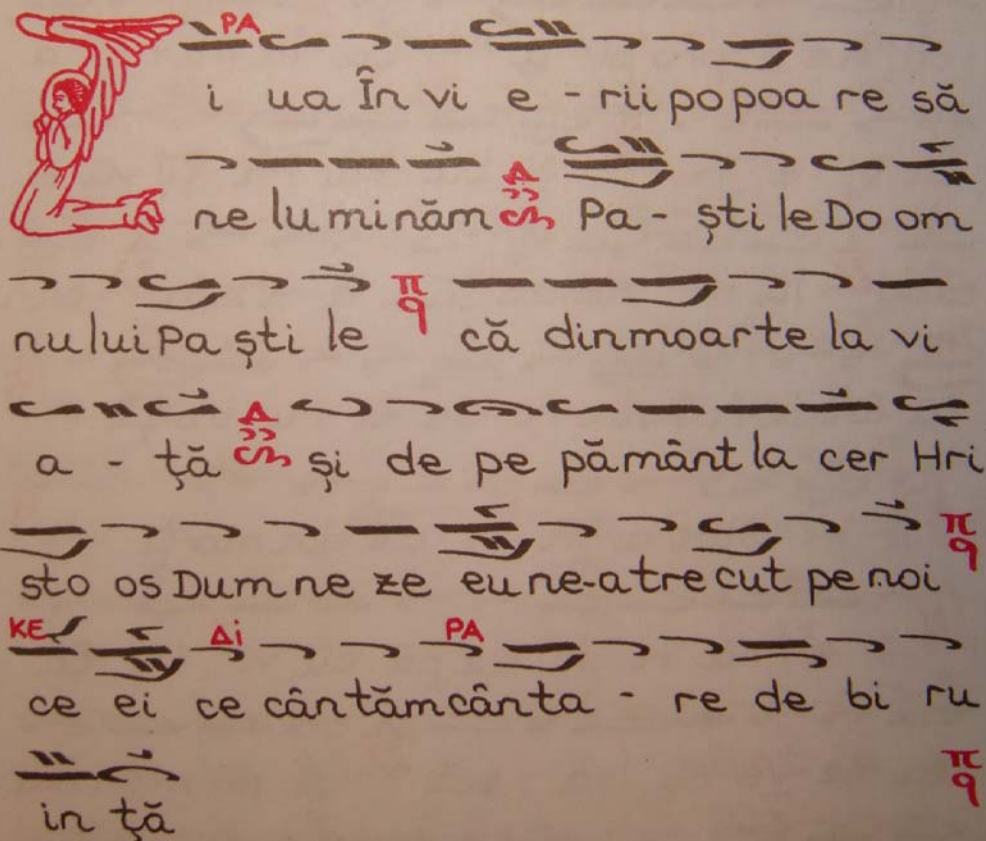 PA
Zi ua În vi e - rii po poa re să
ne lu mi năm Pa - ști le Do om
nu lui Pa ști le că din moar te la vi
a - ță și de pe pă mânt la cer Hri
sto os Dum ne ze eu ne-a tre cut pe noi
KE Δi PA
ce ei ce cân tăm cân ta - re de bi ru
in ță